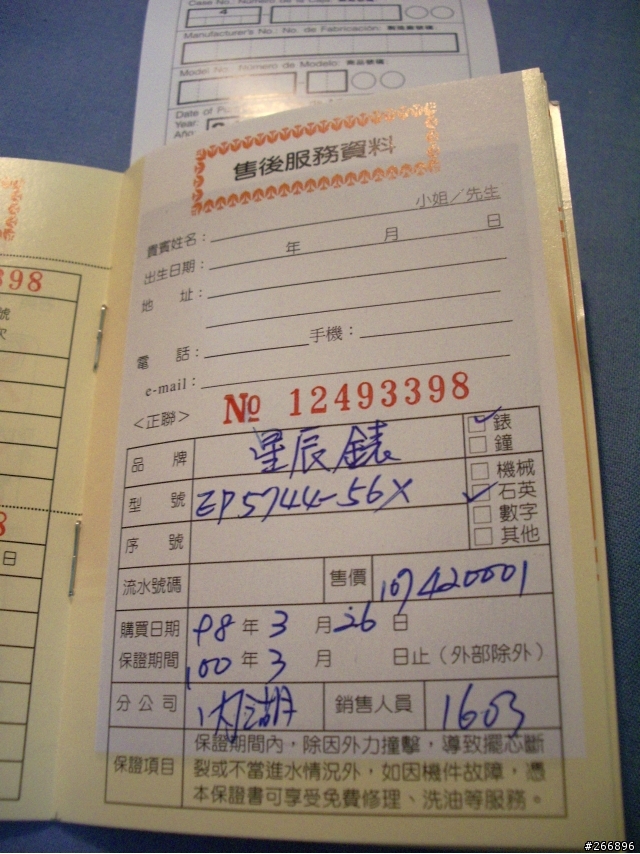 4
Manufacturer's No.: No. de Fabricación:
Model No.: Número de Modelo:
Year:
Año:
售後服務資料
貴賓姓名： 小姐／先生
出生日期： 年 月 日
地 址：
電 話： 手機：
e-mail：
<正聯> № 12493398
品 牌 星辰錶 錶
鐘
型 號 EP5744-56X 機械
石英
數字
序 號 其他
流水號碼 售價 107420001
購買日期 98 年 3 月 26 日
保證期間 100 年 3 月 日止（外部除外）
分公司 內湖 銷售人員 1603
保證項目 保證期間內，除因外力撞擊，導致擺芯斷
裂或不當進水情況外，如因機件故障，憑
本保證書可享受免費修理、洗油等服務。
398
號
日
#266896